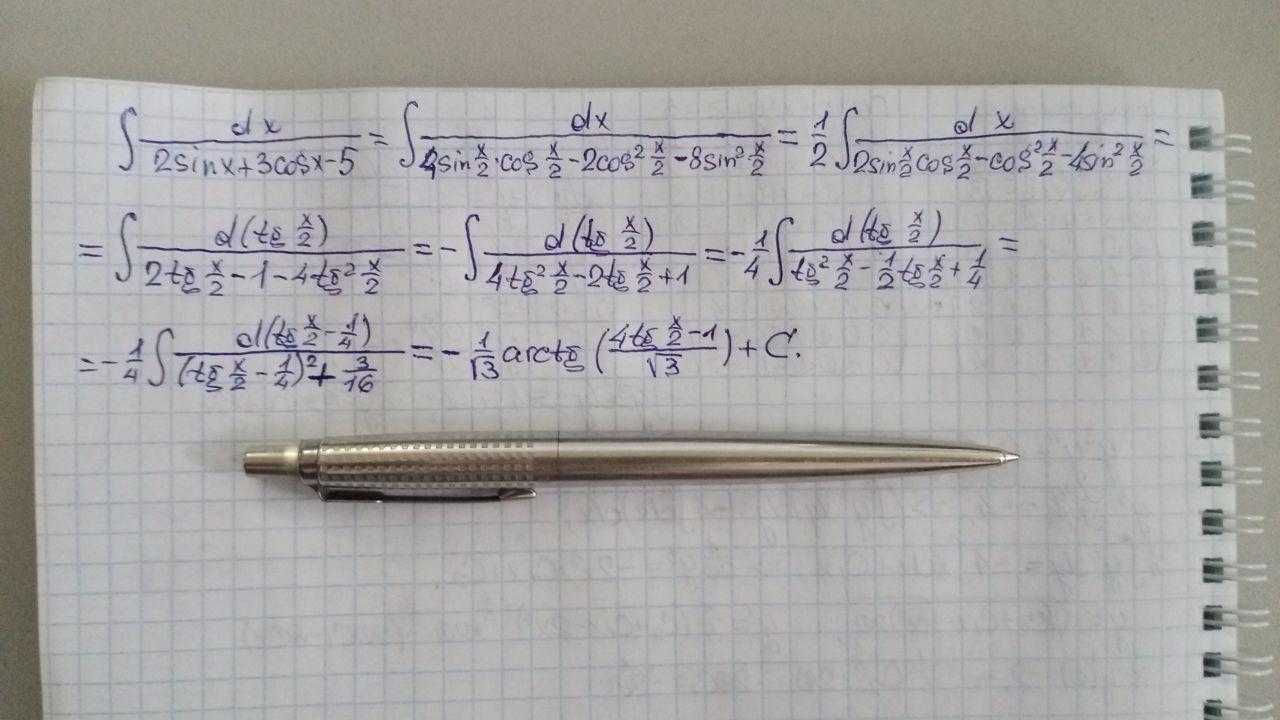 ∫ dx / (2sinx+3cosx-5) = ∫ dx / (4sin x/2 · cos x/2 - 2cos² x/2 - 8sin² x/2) = 1/2 ∫ dx / (2sin x/2 cos x/2 - cos² x/2 - 4sin² x/2) =
= ∫ d(tg x/2) / (2tg x/2 - 1 - 4tg² x/2) = - ∫ d(tg x/2) / (4tg² x/2 - 2tg x/2 + 1) = - 1/4 ∫ d(tg x/2) / (tg² x/2 - 1/2 tg x/2 + 1/4) =
= - 1/4 ∫ d(tg x/2 - 1/4) / ((tg x/2 - 1/4)² + 3/16) = - 1/√3 arctg ((4tg x/2 - 1)/√3) + C.